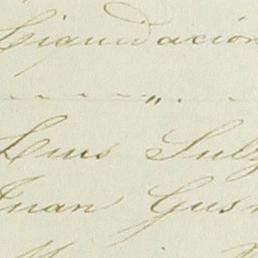 Liquidación
"
Luis Sulz
Juan Gus